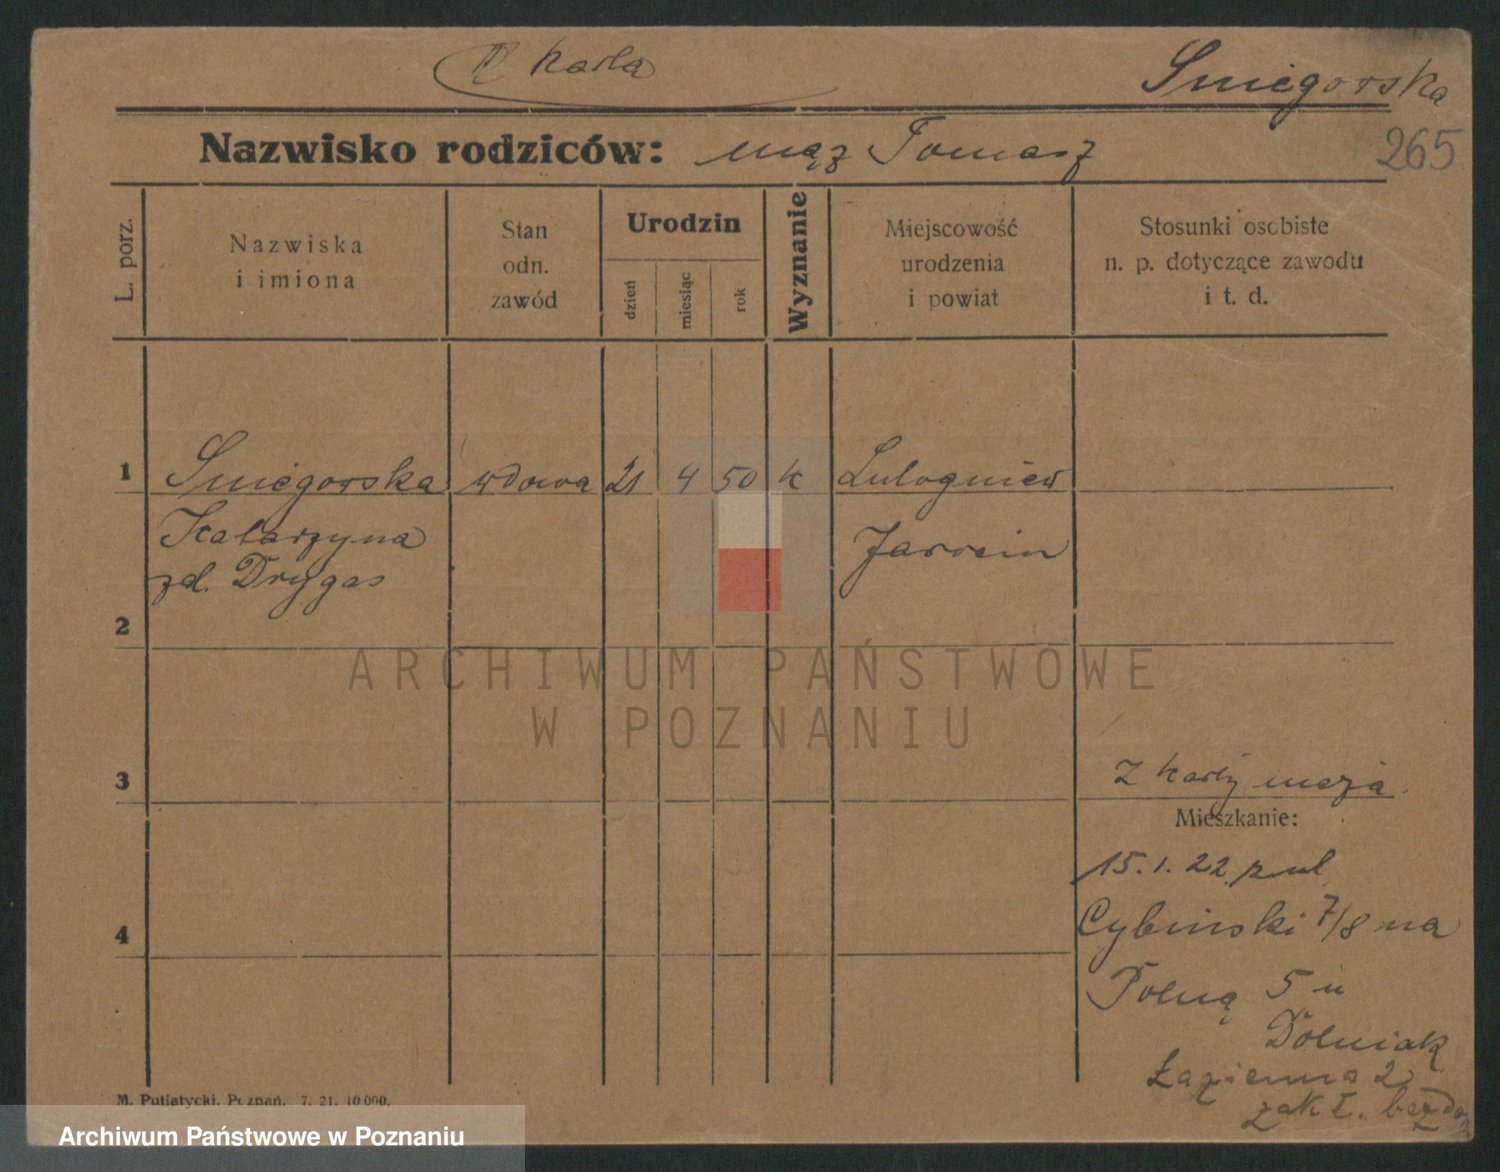 II karta
Smigorska
Nazwisko rodziców: mąż Tomasz
265
L. porz.
Nazwiska
i imiona
Stan
odn.
zawód
Urodzin
dzień
miesiąc
rok
Wyznanie
Miejscowość
urodzenia
i powiat
Stosunki osobiste
n. p. dotyczące zawodu
i t. d.
1 Smigorska wdowa 21 4 50 k Lutogniew
Katarzyna Jarocin
zd. Drygas
2
ARCHIWUM PAŃSTWOWE
W POZNANIU
3
z karty męża
Mieszkanie:
15.1.22 z ul
4
Cybinski 7/8 na
Polną 5 u
Polniak
Łazienna 2
zakł.
M. Putiatycki, Poznań. 7. 21. 10 000.
Archiwum Państwowe w Poznaniu